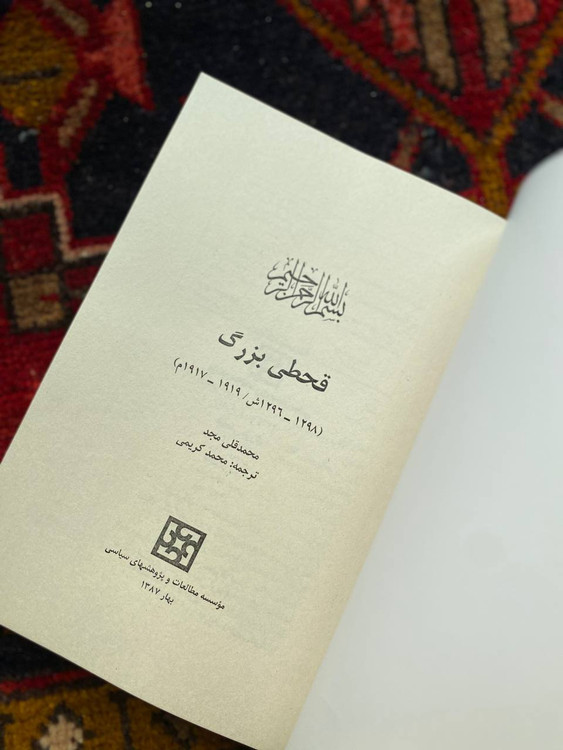 بسم الله الرحمن الرحیم
قحطی بزرگ
(۱۲۹۸ ـ ۱۲۹۶ش/ ۱۹۱۹ ـ ۱۹۱۷م)
محمدقلی مجد
ترجمه: محمد کریمی
مؤسسه مطالعات و پژوهشهای سیاسی
بهار ۱۳۸۷